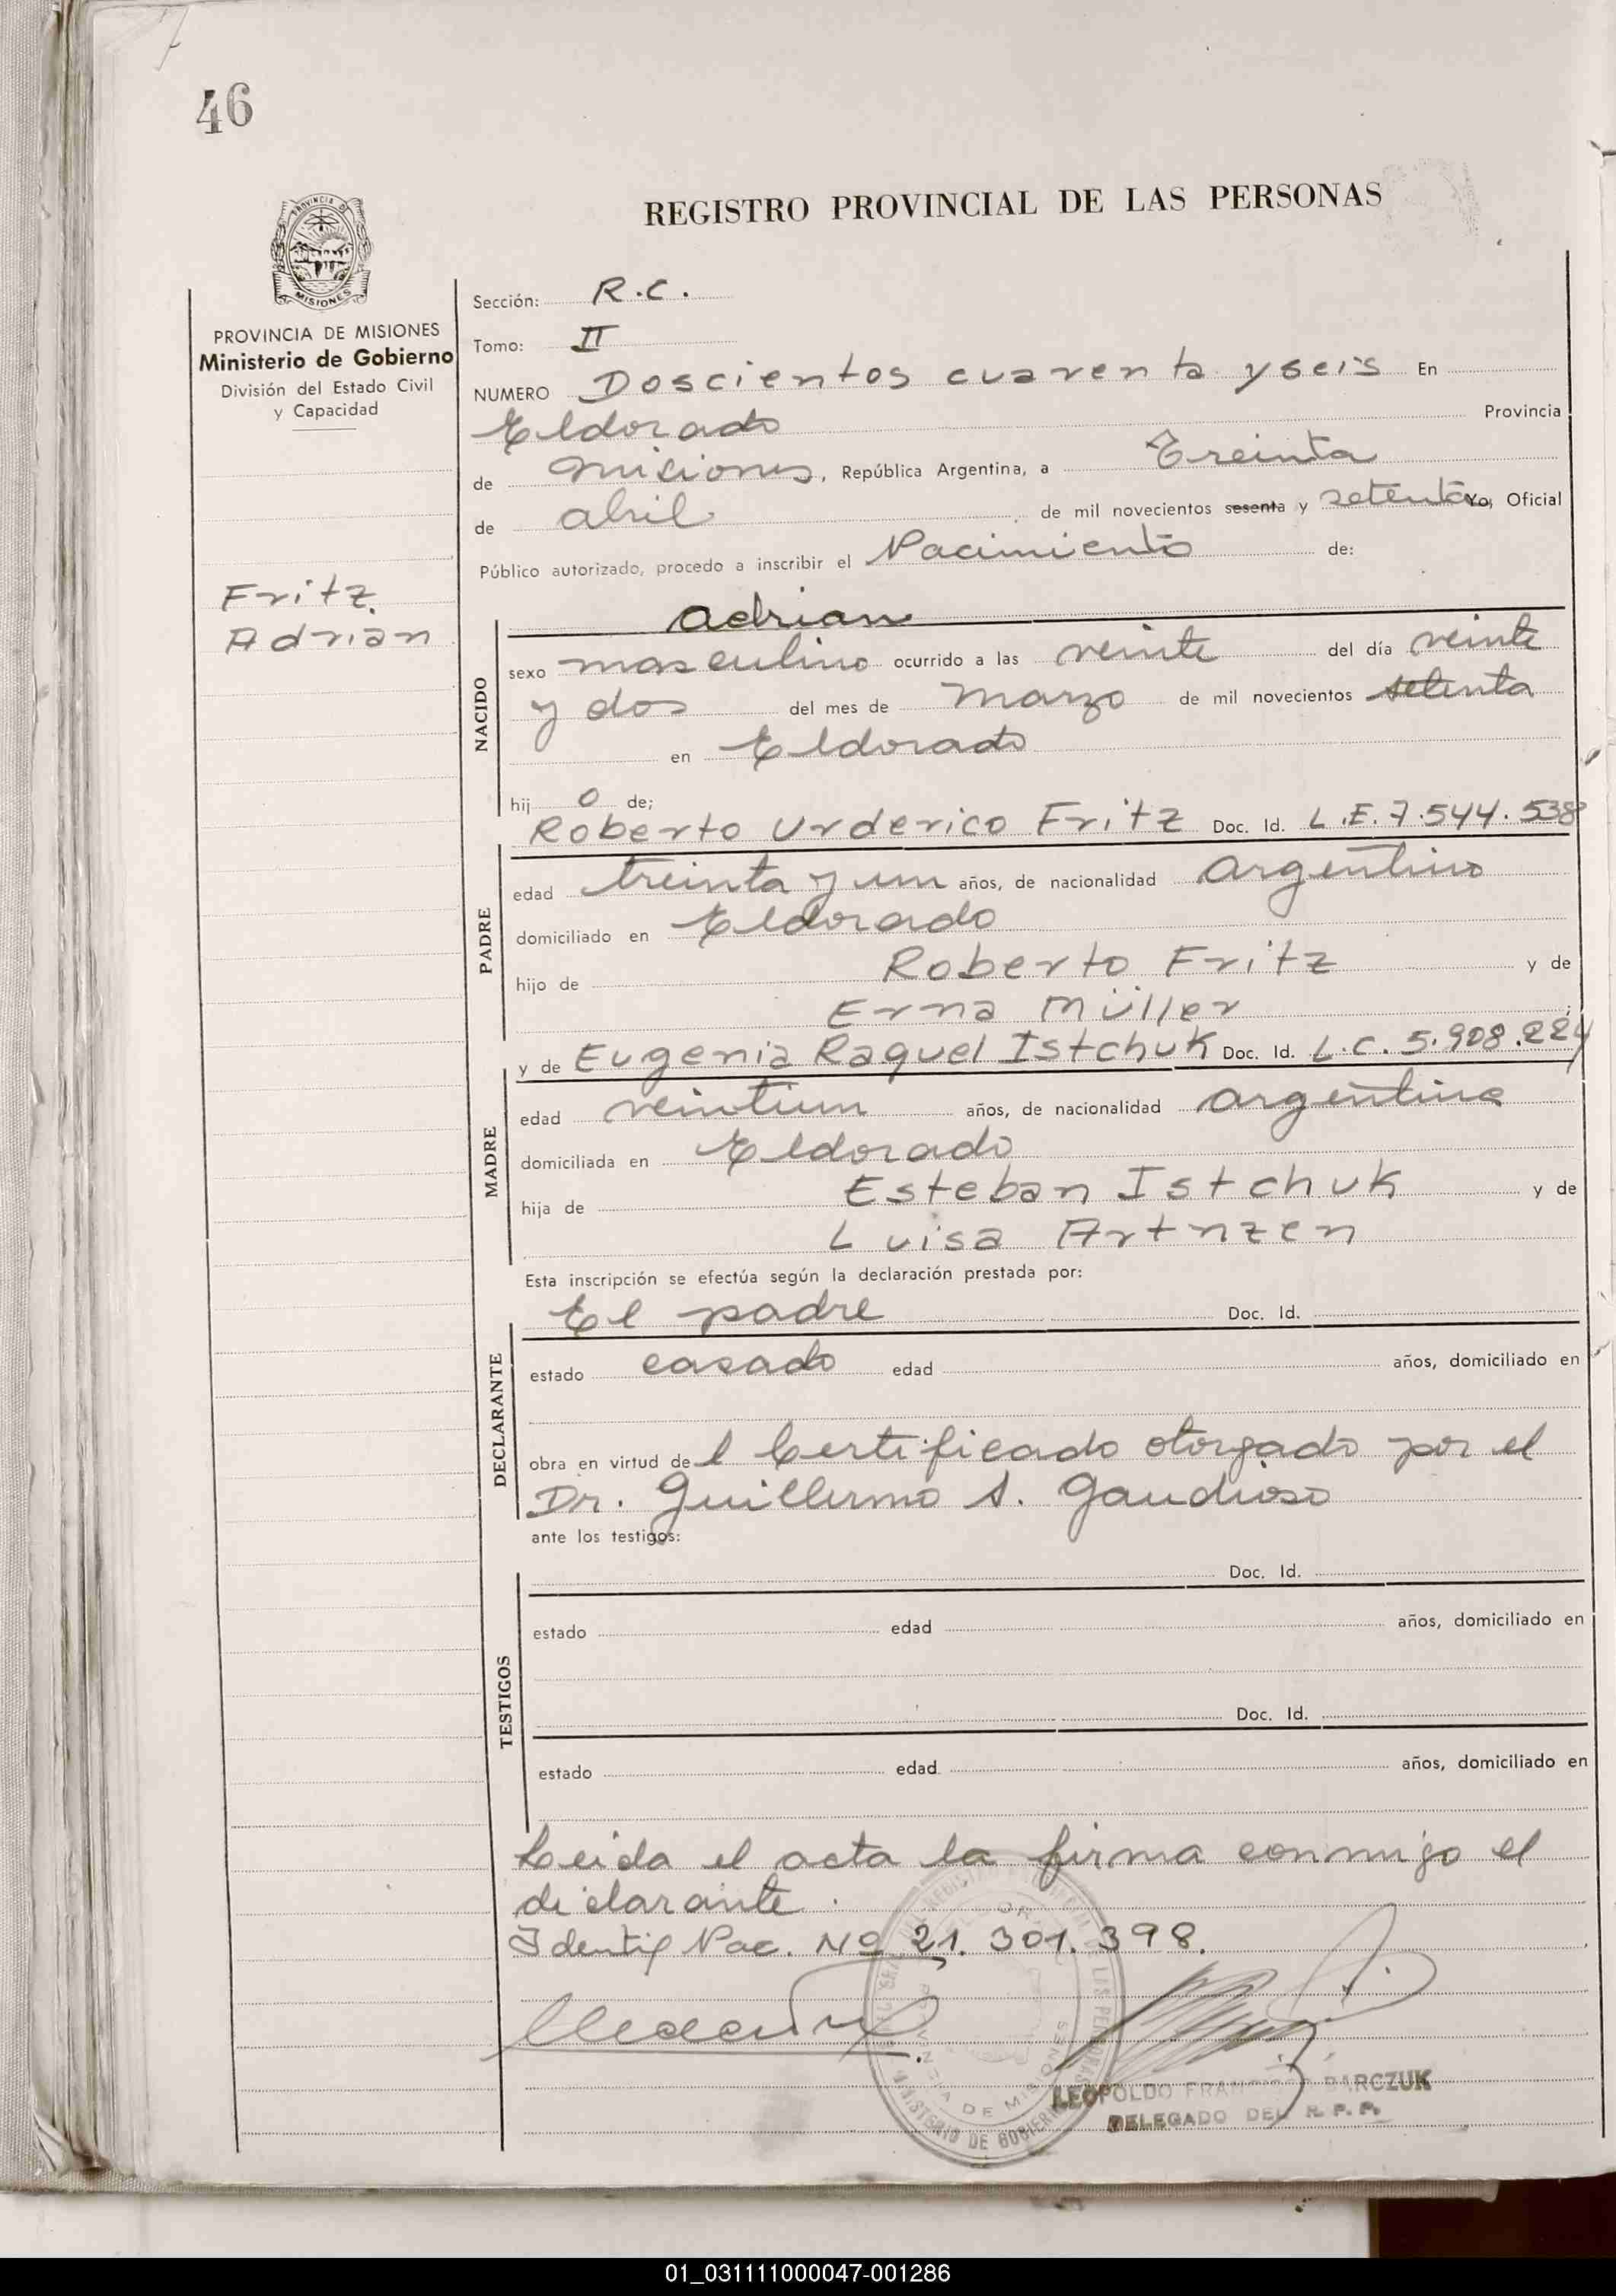 46
PROVINCIA DE MISIONES
REGISTRO PROVINCIAL DE LAS PERSONAS
PROVINCIA DE MISIONES
Ministerio de Gobierno
División del Estado Civil
y Capacidad
Fritz
Adrian
Sección: R.C.
Tomo: II
NUMERO Doscientos cuarenta y seis En
Eldorado Provincia
de Misiones, República Argentina, a Treinta
de abril de mil novecientos sesenta y setenta Yo, Oficial
Público autorizado, procedo a inscribir el Nacimiento de:
NACIDO
Adrian
sexo masculino ocurrido a las veinte del día veinte
y dos del mes de Marzo de mil novecientos setenta
en Eldorado
hij o de;
PADRE
Roberto Urderico Fritz Doc. Id. L.E. 7.544.538
edad treinta y un años, de nacionalidad argentino
domiciliado en Eldorado
hijo de Roberto Fritz y de
Erna Müller
MADRE
y de Eugenia Raquel Istchuk Doc. Id. L.C. 5.908.224
edad veintiun años, de nacionalidad argentina
domiciliada en Eldorado
hija de Esteban Istchuk y de
Luisa Artnzen
Esta inscripción se efectúa según la declaración prestada por:
DECLARANTE
El padre Doc. Id.
estado casado edad años, domiciliado en
obra en virtud de l Certificado otorgado por el
Dr. Guillermo A. Gaudioso
ante los testigos:
TESTIGOS
Doc. Id.
estado edad años, domiciliado en
Doc. Id.
estado edad años, domiciliado en
Leida el acta la firma conmigo el
declarante.
Identif Nac. Nº 21.301.398.
LEOPOLDO FRANCISCO BARCZUK
DELEGADO DEL R.P.P.
MINISTERIO DE GOBIERNO
PROVINCIA DE MISIONES
01_031111000047-001286